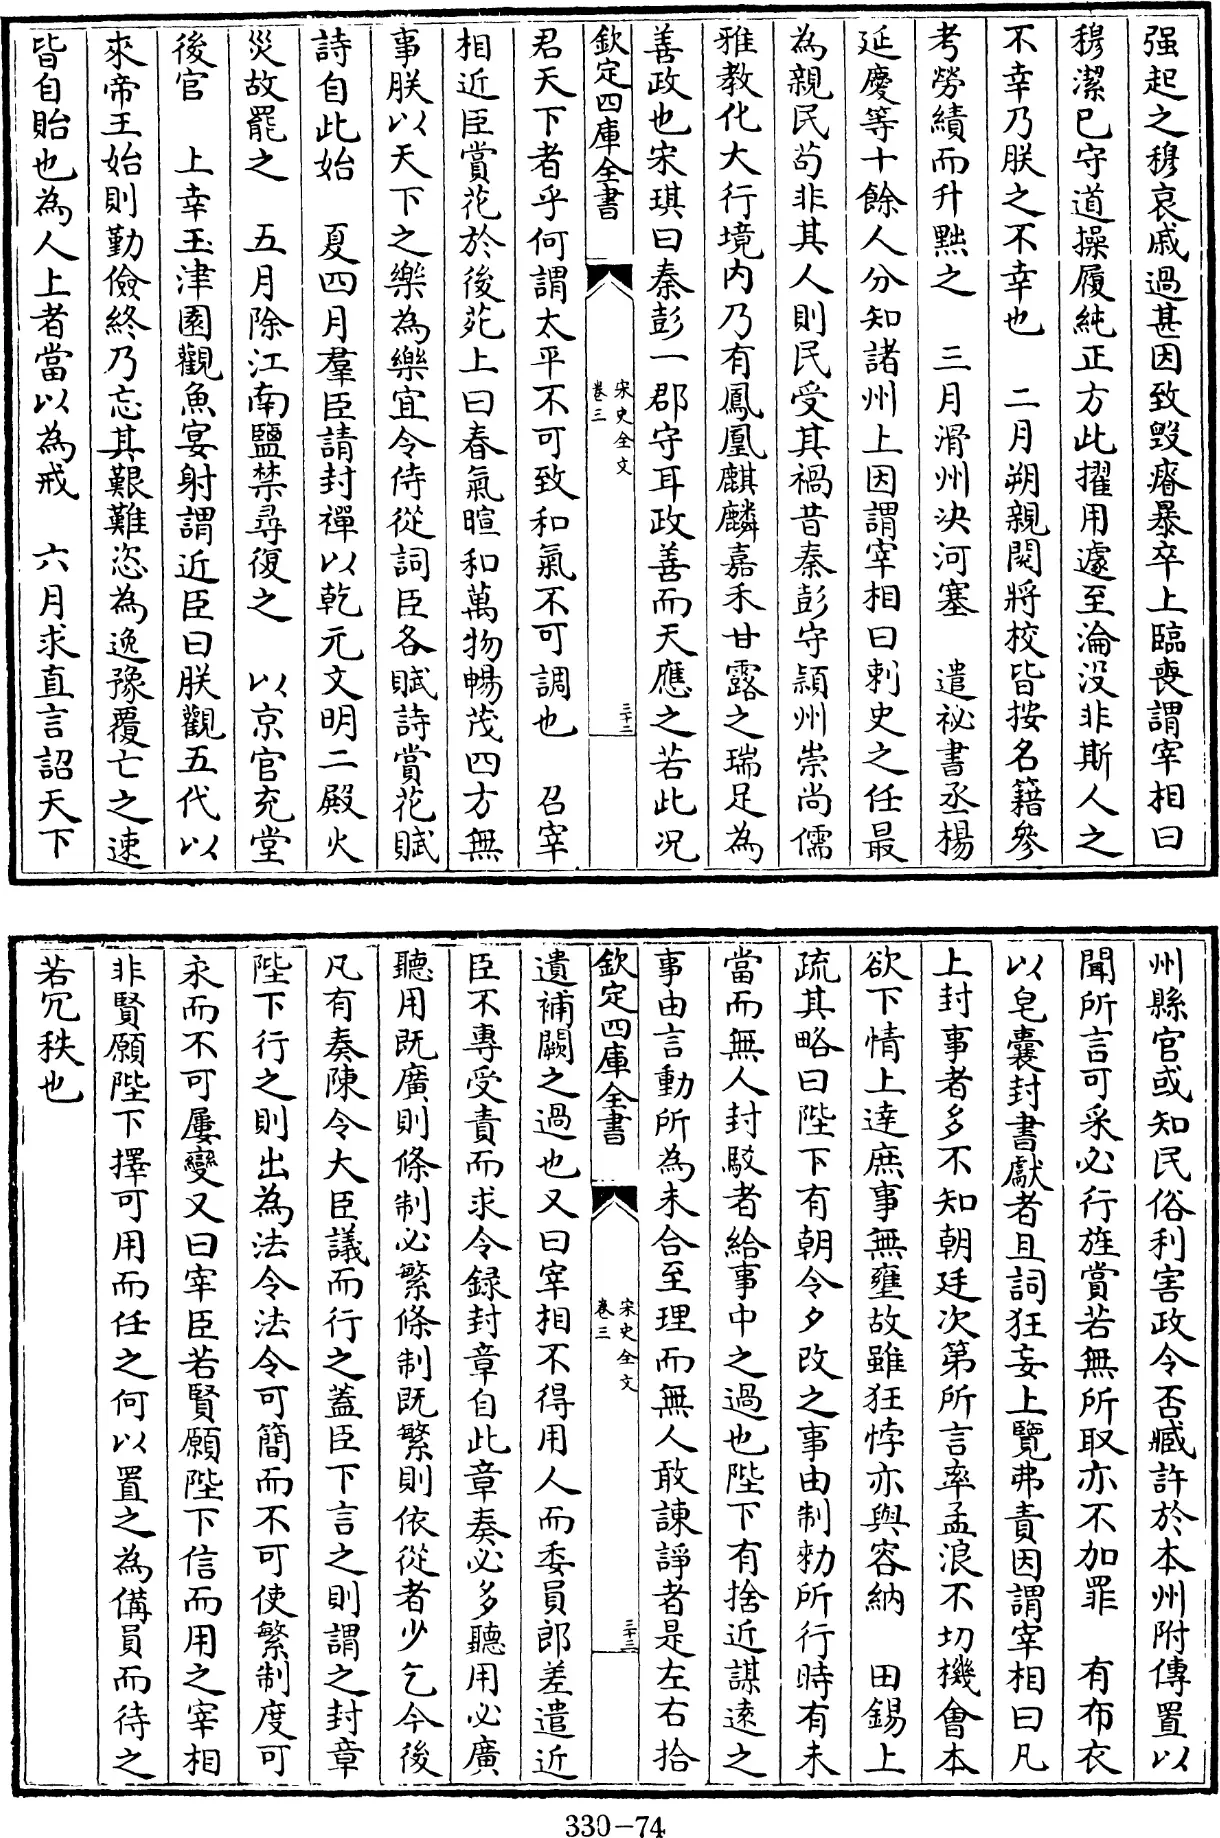 强起之穆哀戚過甚因致毁瘠暴卒上臨喪謂宰相曰
穆潔已守道操履純正方此擢用遽至淪没非斯人之
不幸乃朕之不幸也　二月朔親閲將校皆按名籍參
考勞績而升黜之　三月滑州決河塞　遣祕書丞楊
延慶等十餘人分知諸州上因謂宰相曰刺史之任最
為親民苟非其人則民受其禍昔秦彭守頴州崇尚儒
雅教化大行境内乃有鳳凰麒麟嘉禾甘露之瑞足為
善政也宋琪曰秦彭一郡守耳政善而天應之若此况
欽定四庫全書
宋史全文
卷三
三十二
君天下者乎何謂太平不可致和氣不可調也　召宰
相近臣賞花於後苑上曰春氣暄和萬物暢茂四方無
事朕以天下之樂為樂宜令侍從詞臣各賦詩賞花賦
詩自此始　夏四月羣臣請封禪以乾元文明二殿火
災故罷之　五月除江南鹽禁尋復之　以京官充堂
後官　上幸玉津園觀魚宴射謂近臣曰朕觀五代以
來帝王始則勤儉終乃忘其艱難恣為逸豫覆亡之速
皆自貽也為人上者當以為戒　六月求直言詔天下
州縣官或知民俗利害政令否臧許於本州附傳置以
聞所言可采必行旌賞若無所取亦不加罪　有布衣
以皂囊封書獻者且詞狂妄上覽弗責因謂宰相曰凡
上封事者多不知朝廷次第所言率孟浪不切機會本
欲下情上達庶事無壅故雖狂悖亦與容納　田錫上
疏其略曰陛下有朝令夕改之事由制勑所行時有未
當而無人封駁者給事中之過也陛下有捨近謀逺之
事由言動所為未合至理而無人敢諫諍者是左右拾
欽定四庫全書
宋史全文
卷三
三十三
遺補闕之過也又曰宰相不得用人而委員郎差遣近
臣不專受責而求令録封章自此章奏必多聽用必廣
聽用既廣則條制必繁條制既繁則依從者少乞今後
凡有奏陳令大臣議而行之蓋臣下言之則謂之封章
陛下行之則出為法令法令可簡而不可使繁制度可
永而不可屢變又曰宰臣若賢願陛下信而用之宰相
非賢願陛下擇可用而任之何以置之為備員而待之
若冗秩也
330-74